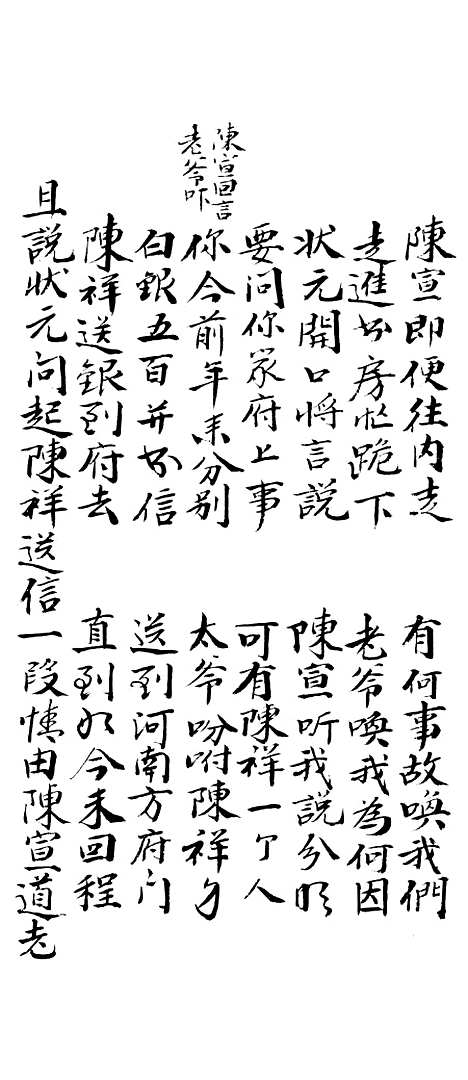 陳宣即便往内走　有何事故喚我們
走進书房忙跪下　老爷喚我為何因
状元開口將言説　陳宣听我説分明
要问你家府上事　可有陳祥一个人
陳宣回言
老爷吓
你今前年来分别　太爷吩咐陳祥身
白銀五百并书信　送到河南方府门
陳祥送銀到府去　直到如今未回程
且説状元问起陳祥送信一段情由陳宣道老